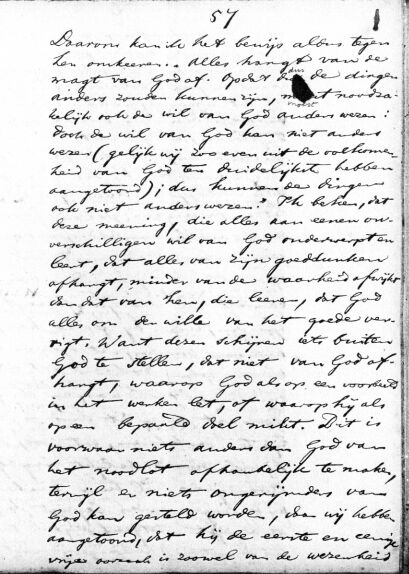 57
Daarom kan ik het bewijs aldus tegen
hen omkeeren. Alles hangt van de
magt van God af. Opdat dus de dingen
anders zouden kunnen zijn, moest noodza-
kelijk ook de wil van God anders wezen:
doch de wil van God kan niet anders
wezen (gelijk wij zoo even uit de volkomen-
heid van God ten duidelijkst hebben
aangetoond); dus kunnen de dingen
ook niet anders wezen. Ik beken, dat
deze meening, die alles aan eenen on-
verschilligen wil van God onderwerpt en
leert, dat alles van zijn goeddunken
afhangt, minder van de waarheid afwijkt
dan dat van hen, die leeren, dat God
alles om de wille van het goede ver-
rigt. Want dezen schijnen iets buiten
God te stellen, dat niet van God af-
hangt, waarop God als op een voorbeeld
in het werken let, of waarop hij als
op een bepaald doel mikt. Dit is
voorwaar niets anders dan God van
het noodlot afhankelijk te maken,
terwijl er niets ongerijmders van
God kan gesteld worden, dien wij hebben
aangetoond, dat hij de eerste en eenige
vrije oorzaak is zoowel van de wezenheid